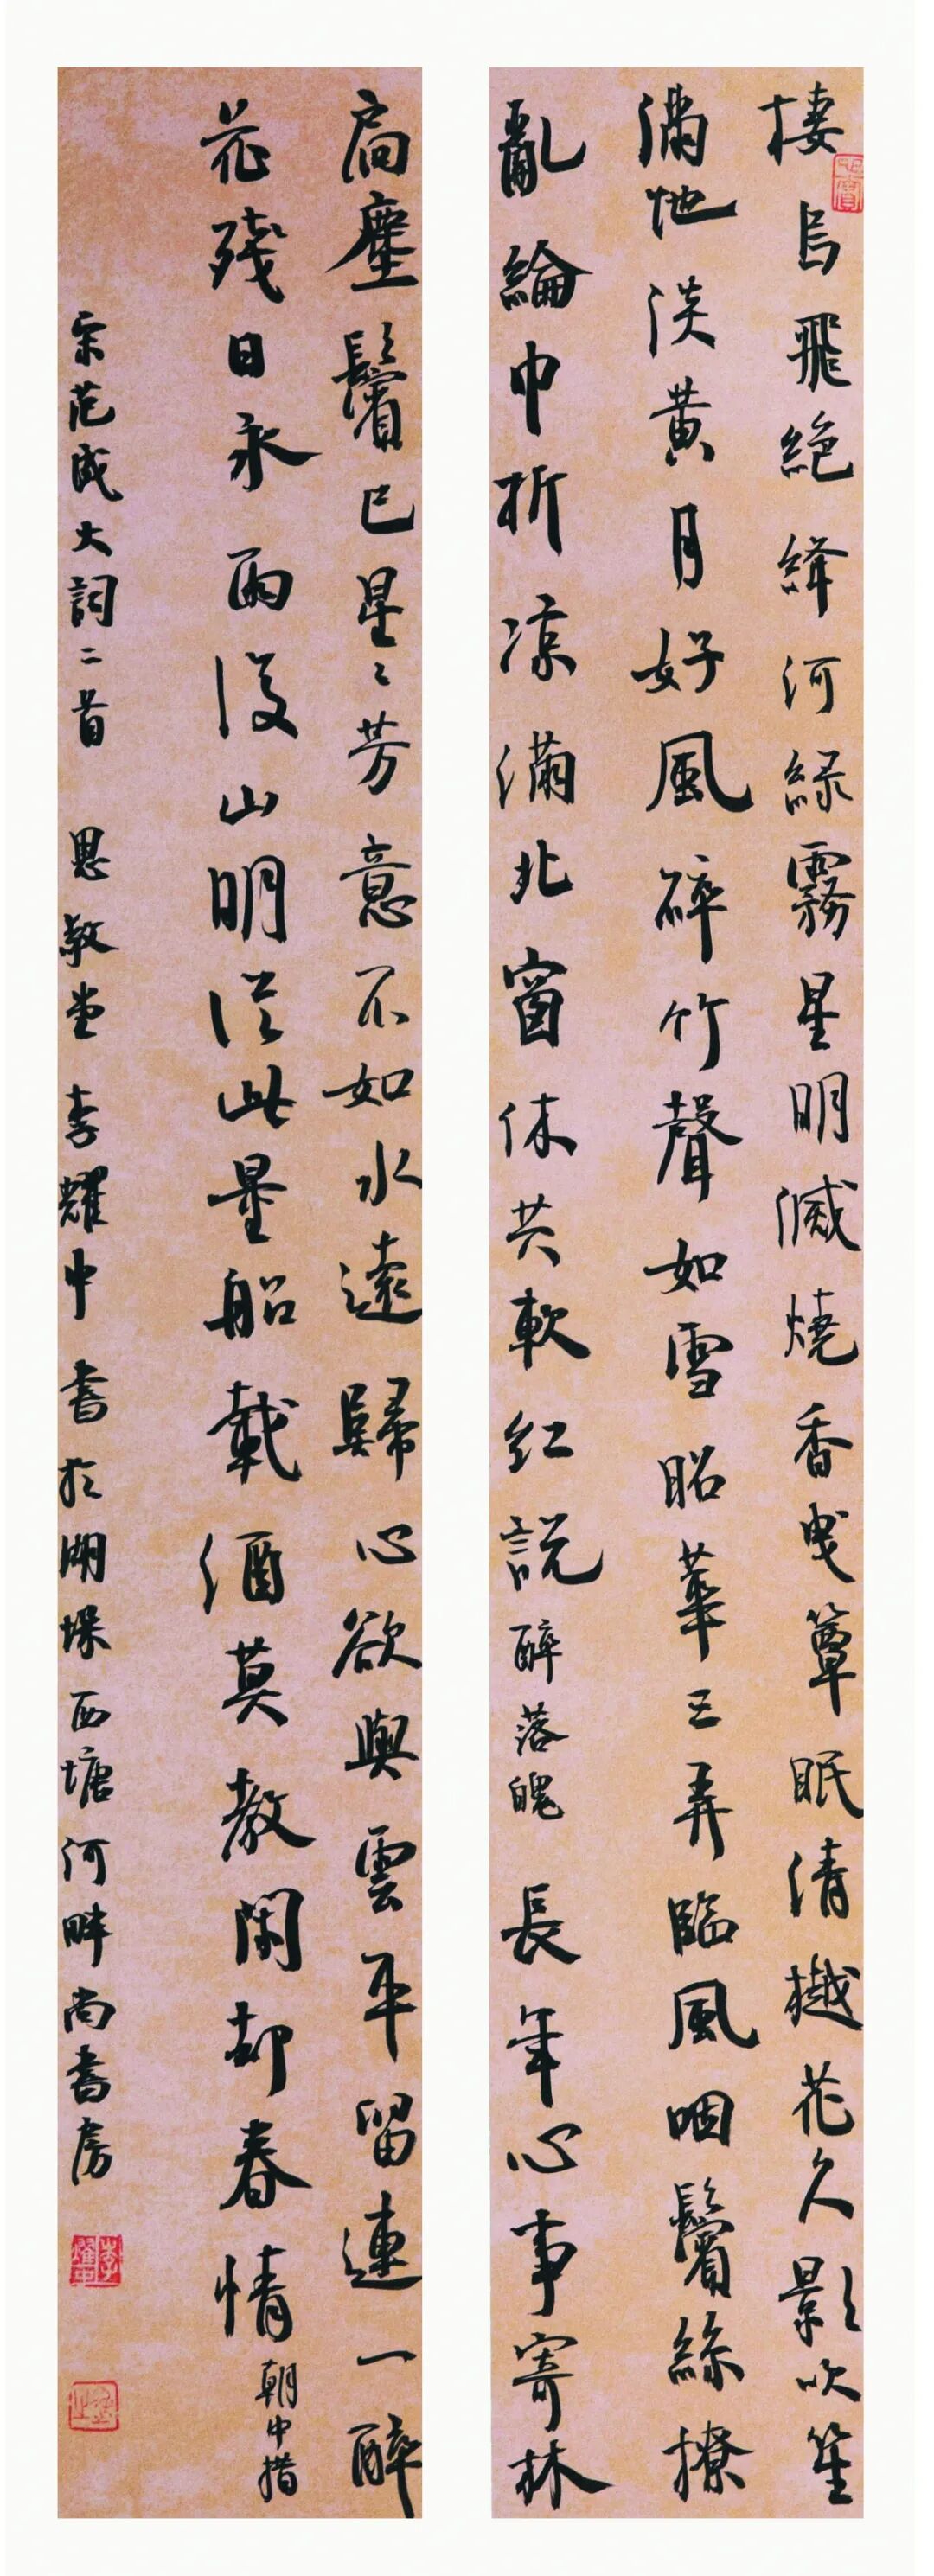 棲烏飛絕絳河綠霧星明滅燒香曳簟眠清樾花久影吹笙
滿地淡黃月好風碎竹聲如雪昭華三弄臨風咽鬢絲撩
亂綸巾折涼滿北窗休共軟紅說 醉落魄 長年心事寄林
扃塵鬢已星〻芳意不如水遠歸心欲與雲平留連一醉
花殘日永雨後山明從此量船載酒莫教閑却春情 朝中措
宋范成大詞二首 思敬堂 李耀中 書於湖垛西塘河畔尚書房
李耀中